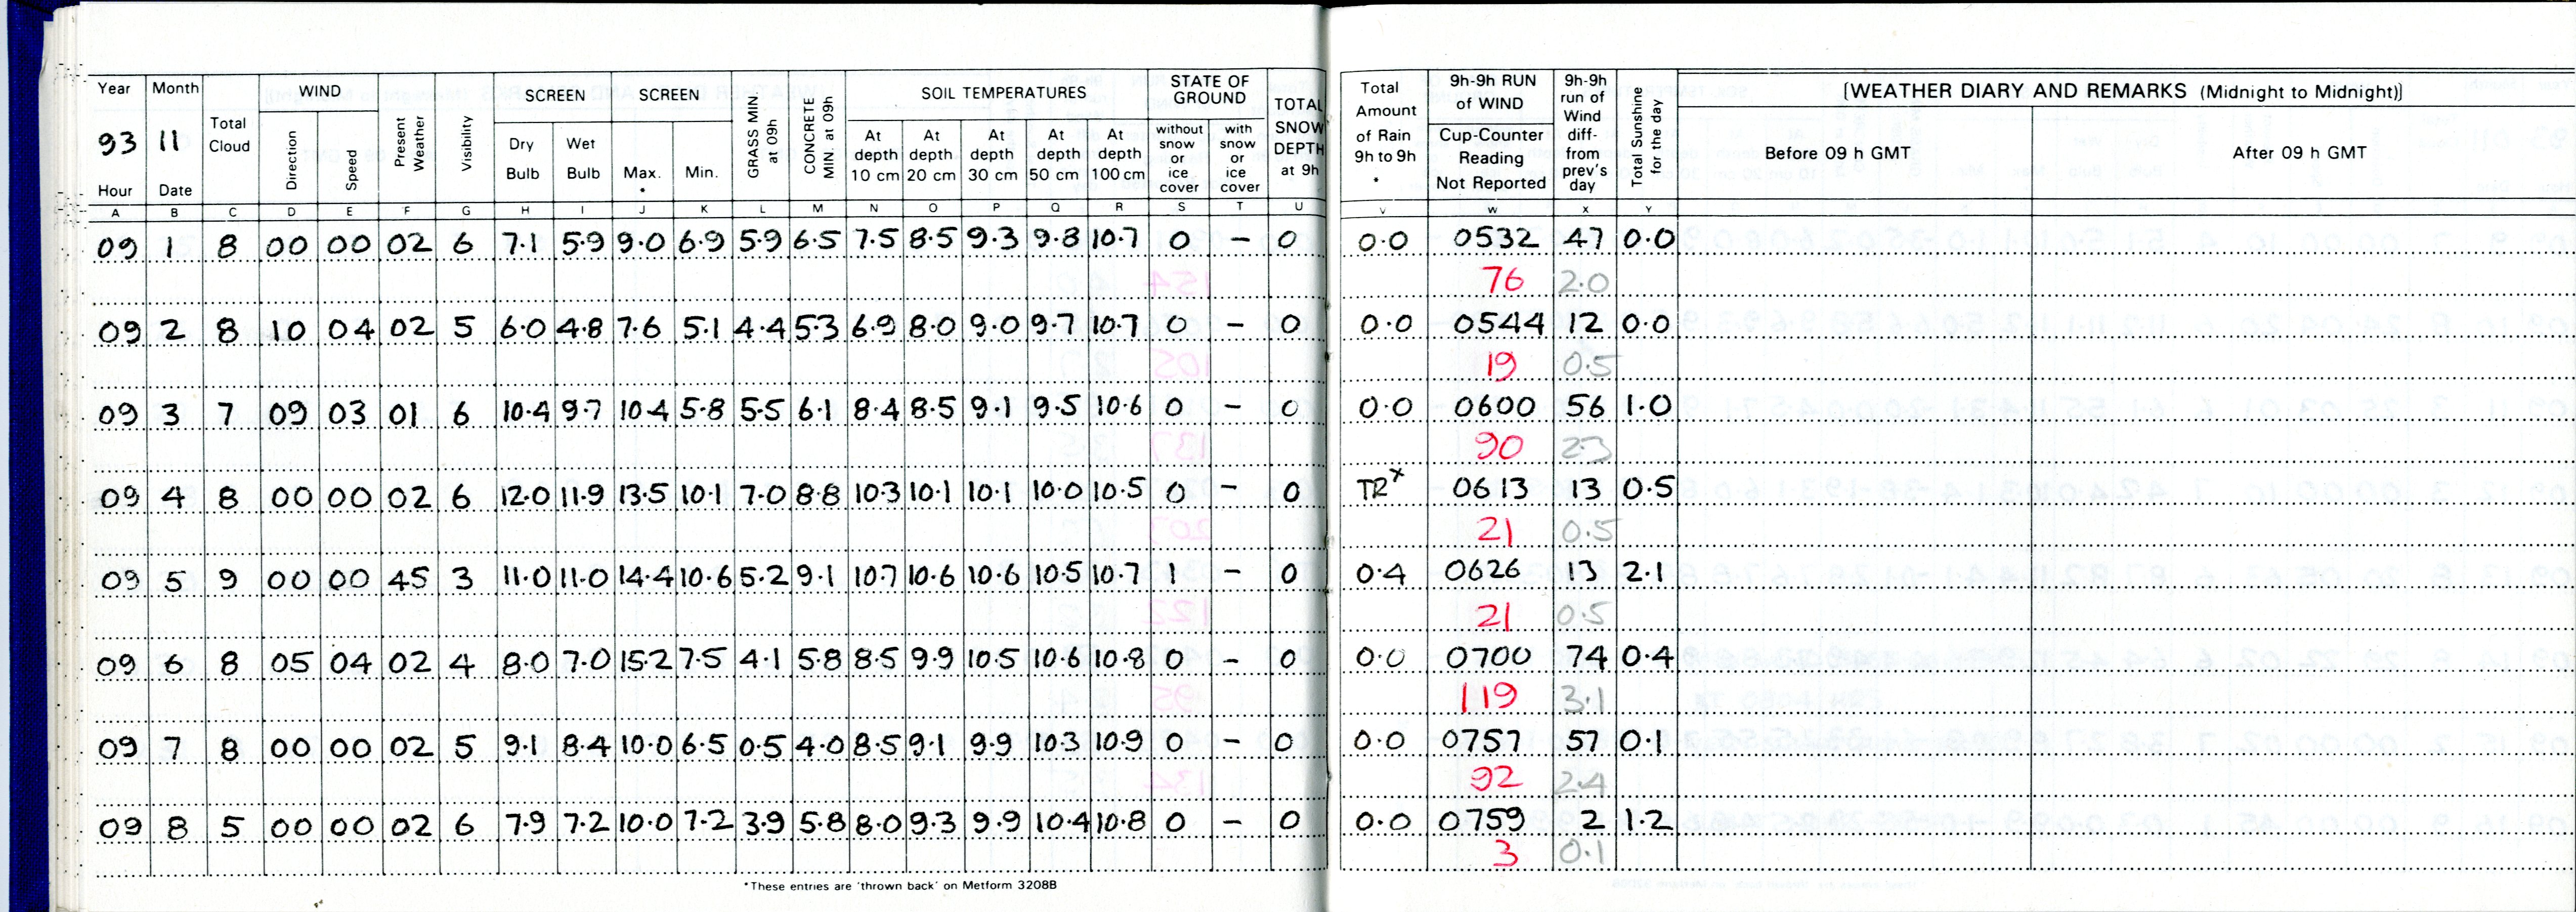 Year Month Total Cloud WIND Present Weather Visibility SCREEN SCREEN GRASS MIN. at 09h CONCRETE MIN. at 09h SOIL TEMPERATURES STATE OF GROUND TOTAL SNOW DEPTH at 9h Total Amount of Rain 9h to 9h * 9h-9h RUN of WIND 9h-9h run of Wind diff- from prev's day Total Sunshine for the day [WEATHER DIARY AND REMARKS (Midnight to Midnight)]
93 11 Direction Speed Dry Bulb Wet Bulb Max. * Min. At depth 10 cm At depth 20 cm At depth 30 cm At depth 50 cm At depth 100 cm without snow or ice cover with snow or ice cover Cup-Counter Reading Not Reported Before 09 h GMT After 09 h GMT
Hour Date
A B C D E F G H I J K L M N O P Q R S T U V W X Y
09 1 8 00 00 02 6 7.1 5.9 9.0 6.9 5.9 6.5 7.5 8.5 9.3 9.8 10.7 0 – 0 0.0 0532 47 0.0
76 2.0
09 2 8 10 04 02 5 6.0 4.8 7.6 5.1 4.4 5.3 6.9 8.0 9.0 9.7 10.7 0 – 0 0.0 0544 12 0.0
19 0.5
09 3 7 09 03 01 6 10.4 9.7 10.4 5.8 5.5 6.1 8.4 8.5 9.1 9.5 10.6 0 – 0 0.0 0600 56 1.0
90 2.3
09 4 8 00 00 02 6 12.0 11.9 13.5 10.1 7.0 8.8 10.3 10.1 10.1 10.0 10.5 0 – 0 TR x 0613 13 0.5
21 0.5
09 5 9 00 00 45 3 11.0 11.0 14.4 10.6 5.2 9.1 10.7 10.6 10.6 10.5 10.7 1 – 0 0.4 0626 13 2.1
21 0.5
09 6 8 05 04 02 4 8.0 7.0 15.2 7.5 4.1 5.8 8.5 9.9 10.5 10.6 10.8 0 – 0 0.0 0700 74 0.4
119 3.1
09 7 8 00 00 02 5 9.1 8.4 10.0 6.5 0.5 4.0 8.5 9.1 9.9 10.3 10.9 0 – 0 0.0 0757 57 0.1
92 2.4
09 8 5 00 00 02 6 7.9 7.2 10.0 7.2 3.9 5.8 8.0 9.3 9.9 10.4 10.8 0 – 0 0.0 0759 2 1.2
3 0.1
*These entries are 'thrown back' on Metform 3208B